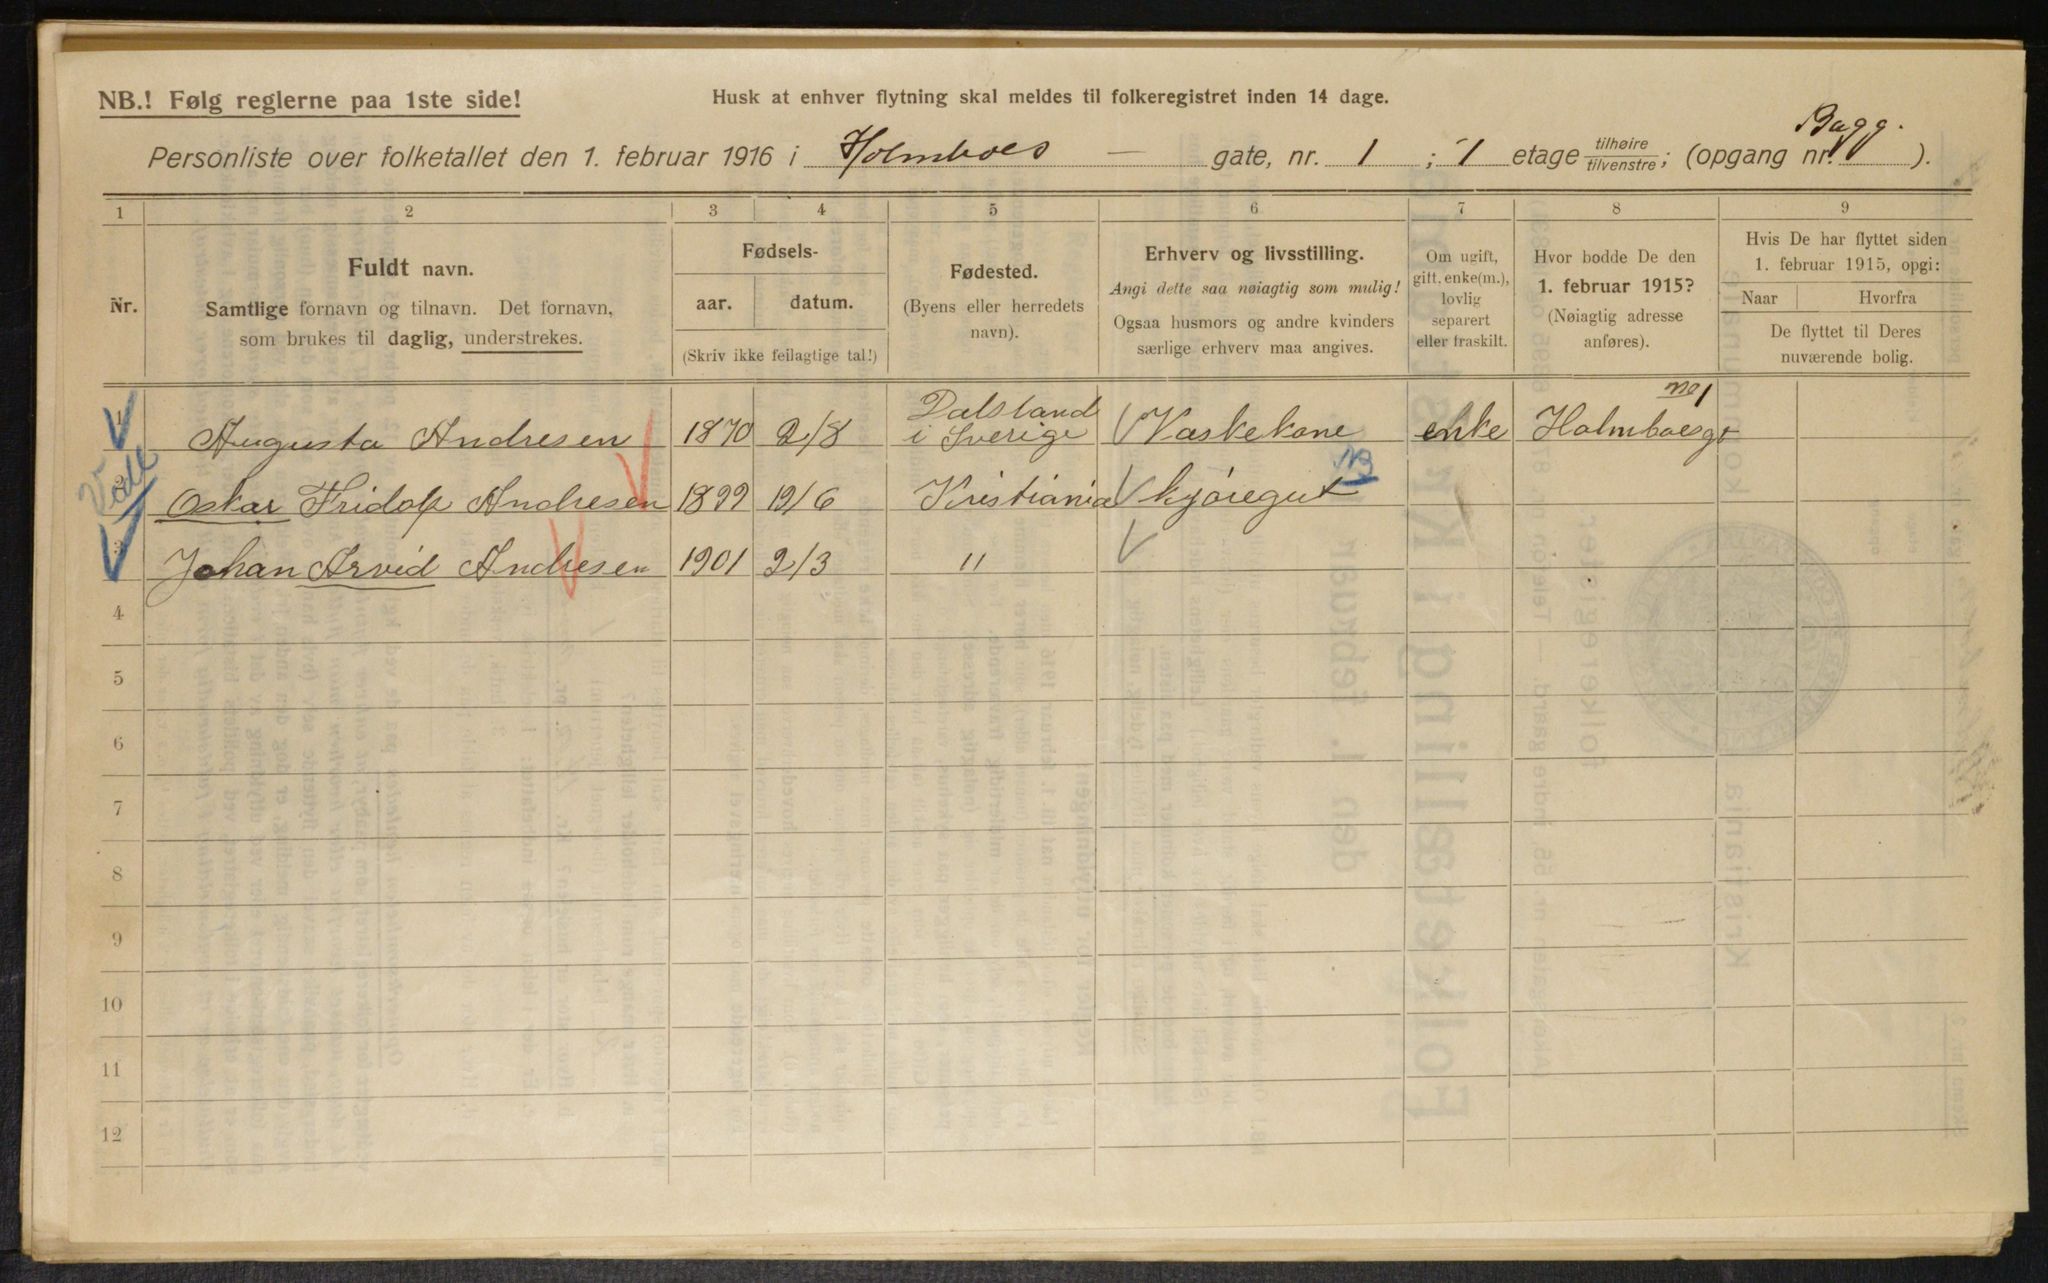 NB.! Følg reglerne paa 1ste side!
Husk at enhver flytning skal meldes til folkeregistret inden 14 dage.
Personliste over folketallet den 1. februar 1916 i Holmboes — gate, nr. 1 ; 1 etage tilhøire/tilvenstre; (opgang nr. Bagg. ).
1 2 3 4 5 6 7 8 9
Nr.
Fuldt navn.
Samtlige fornavn og tilnavn. Det fornavn,
som brukes til daglig, understrekes.
Fødsels-
aar. datum.
(Skriv ikke feilagtige tal!)
Fødested.
(Byens eller herredets
navn).
Erhverv og livsstilling.
Angi dette saa nøiagtig som mulig!
Ogsaa husmors og andre kvinders
særlige erhverv maa angives.
Om ugift,
gift, enke(m.),
lovlig
separert
eller fraskilt.
Hvor bodde De den
1. februar 1915?
(Nøiagtig adresse
anføres).
Hvis De har flyttet siden
1. februar 1915, opgi:
Naar Hvorfra
De flyttet til Deres
nuværende bolig.
1 Augusta Andresen 1870 2/8 Dalsland i Sverige Vaskekone enke Holmboesgt no 1
2 Oskar Fridolf Andresen 1899 19/6 Kristiania kjøregut NB
3 Johan Arvid Andresen 1901 2/3 "
4
5
6
7
8
9
10
11
12